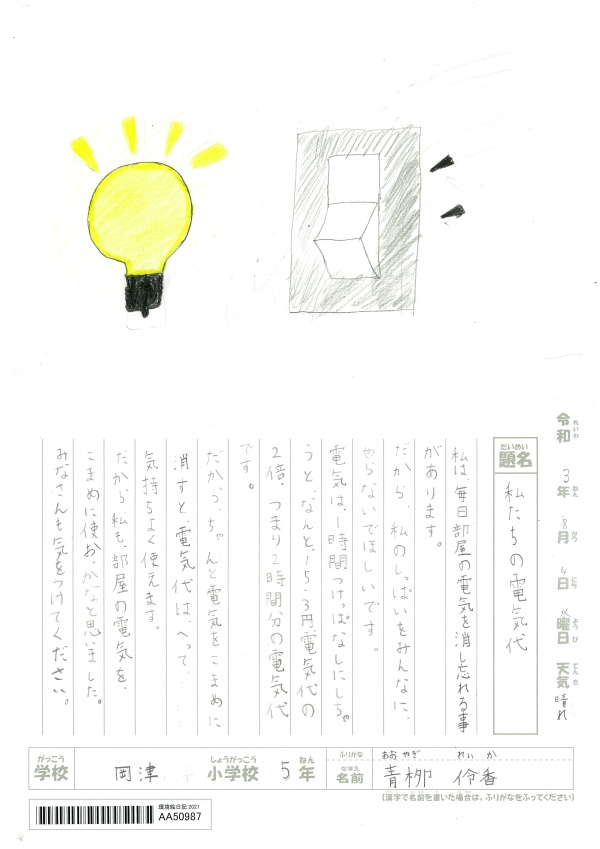 令和3年8月4日水曜日 天気 晴れ
れいわ ねん がつ にち ようび てんき
だいめい
題名 私たちの電気代
私は、毎日部屋の電気を消し忘れる事
があります。
だから、私のしっぱいをみんなに、
やらないでほしいです。
電気は、1時間つけっぱなしにしちゃ
うと、なんと、15.3円電気代の
2倍、つまり2時間分の電気代
です。
だから、ちゃんと電気をこまめに
消すと、電気代は、へって、
気持ちよく使えます。
だから、私も、部屋の電気を、
こまめに使お、かなと思いました。
みなさんも気をつけてください。
がっこう しょうがっこう ねん
学校 岡津 小学校 5年
ふりがな あおやぎ れいか
なまえ
名前 青柳 伶香
(漢字で名前を書いた場合は、ふりがなをふってください)
環境絵日記 2021
AA50987